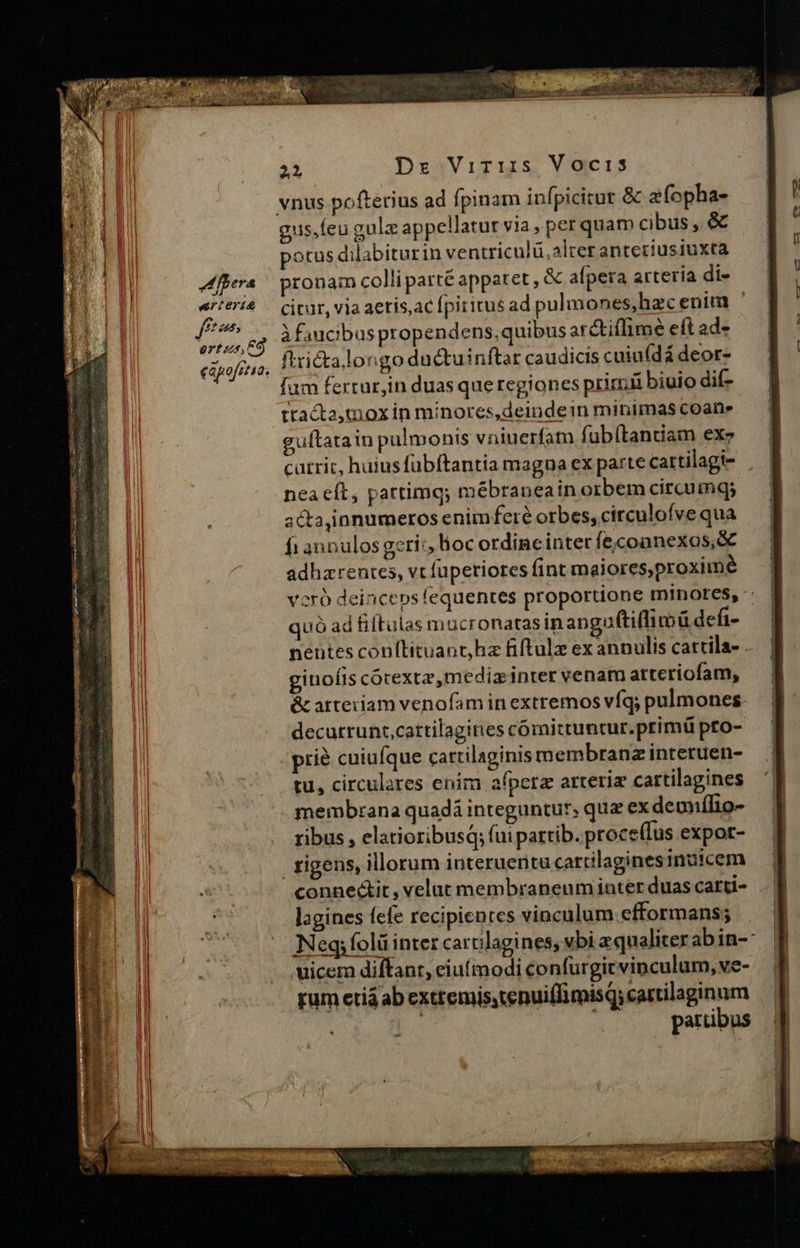 22 De Vitiis Vocis
vnus posterius ad spinam inspicitur & æsopha-
gus, seu gulæ appellatur via, per quam cibus, &
potus dilabitur in ventriculũ, alter anterius iuxta
pronam colli partẽ apparet, & aspera arteria di-
citur, via aeris, ac spiritus ad pulmones, hæc enim
à faucibus propendens, quibus arctissimè est ad-
stricta, longo ductu instar caudicis cuiusdã deor-
sum fertur, in duas que regiones primũ biuio dis-
tracta, mox in minores, deinde in minimas coan-
gustata in pulmonis vniuersam substantiam ex-
currit, huius substantia magna ex parte cartilagi-
nea est, partimq; mẽbranea in orbem circumq;
acta, innumeros enim ferè orbes, circulosve qua
si annulos gerit, hoc ordine inter se, connexos, &
adhærentes, vt superiores sint maiores, proximè
verò deinceps sequentes proportione minores,
quò ad fistulas mucronatas in angustissimũ desi-
nentes constituant, hæ fistulæ ex annulis cartila-
ginosis cõtextæ, mediæ inter venam arteriosam,
& arteriam venosam in extremos vsq; pulmones
decurrunt, cartilagines cõmittuntur. primũ pro-
priè cuiusque cartilaginis membranæ interuen-
tu, circulares enim asperæ arteriæ cartilagines
membrana quadã integuntur, quæ ex demissio-
ribus, elatioribusq́; sui partib. processus expor-
rigens, illorum interuentu cartilagines inuicem
connectit, velut membraneum inter duas carti-
lagines sese recipientes vinculum efformans;
Neq; solũ inter cartilagines, vbi æqualiter ab in-
uicem distant, eiusmodi consurgit vinculum, ve-
rum etiã ab extremis, tenuissimisq́; cartilaginum
partibus
Aspera
arteria
situs,
ortus, &
cõpositio.